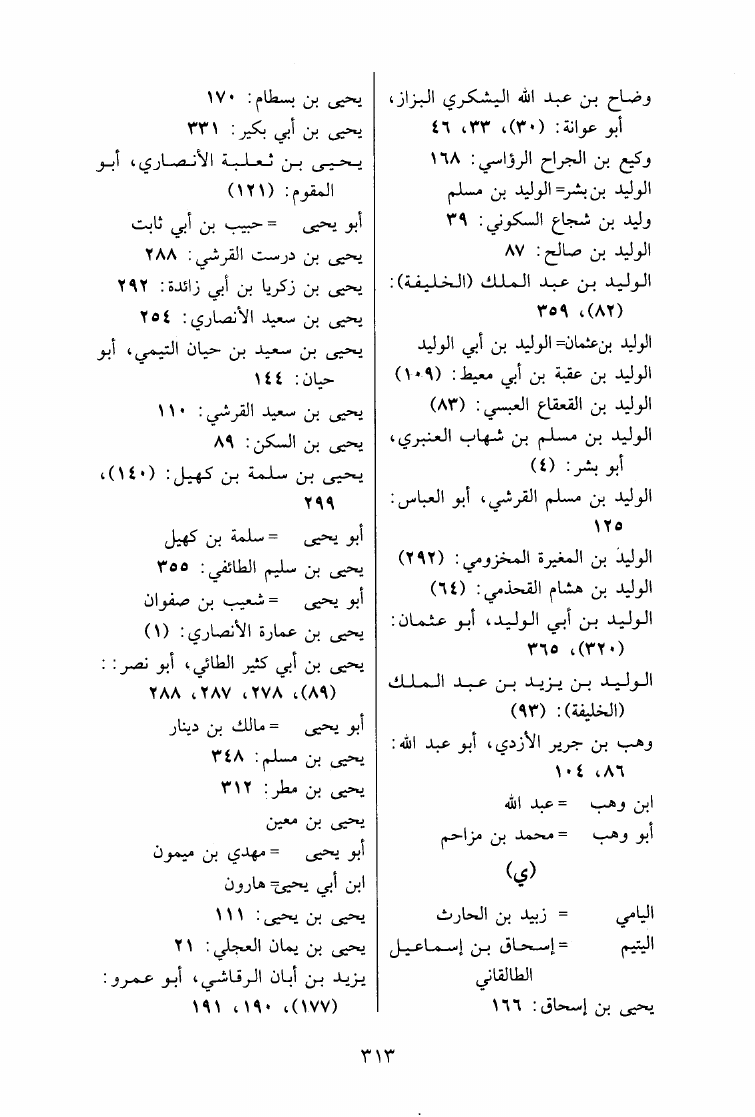 وضاح بن عبد الله اليشكري البزاز،
أبو عوانة: (٣٠)، ٣٣، ٤٦
وكيع بن الجراح الرؤاسي: ١٦٨
الوليد بن بشر= الوليد بن مسلم
وليد بن شجاع السكوني: ٣٩
الوليد بن صالح: ٨٧
الوليد بن عبد الملك (الخليفة):
(٨٢)، ٣٥٩
الوليد بن عثمان= الوليد بن أبي الوليد
الوليد بن عقبة بن أبي معيط: (١٠٩)
الوليد بن القعقاع العبسي: (٨٣)
الوليد بن مسلم بن شهاب العنبري،
أبو بشر: (٤)
الوليد بن مسلم القرشي، أبو العباس:
١٢٥
الوليد بن المغيرة المخزومي: (٢٩٢)
الوليد بن هشام القحذمي: (٦٤)
الوليد بن أبي الوليد، أبو عثمان:
(٣٢٠)، ٣٦٥
الوليد بن يزيد بن عبد الملك
(الخليفة): (٩٣)
وهب بن جرير الأزدي، أبو عبد الله:
٨٦، ١٠٤
ابن وهب = عبد الله
أبو وهب = محمد بن مزاحم
(ي)
اليامي = زبيد بن الحارث
اليتيم = إسحاق بن إسماعيل
الطالقاني
يحيى بن إسحاق: ١٦٦
يحيى بن بسطام: ١٧٠
يحيى بن أبي بكير: ٣٣١
يحيى بن ثعلبة الأنصاري، أبو
المقوم: (١٢١)
أبو يحيى = حبيب بن أبي ثابت
يحيى بن درست القرشي: ٢٨٨
يحيى بن زكريا بن أبي زائدة: ٢٩٢
يحيى بن سعيد الأنصاري: ٢٥٤
يحيى بن سعيد بن حيان التيمي، أبو
حيان: ١٤٤
يحيى بن سعيد القرشي: ١١٠
يحيى بن السكن: ٨٩
يحيى بن سلمة بن كهيل: (١٤٠)،
٢٩٩
أبو يحيى = سلمة بن كهيل
يحيى بن سليم الطائفي: ٣٥٥
أبو يحيى = شعيب بن صفوان
يحيى بن عمارة الأنصاري: (١)
يحيى بن أبي كثير الطائي، أبو نصر: :
(٨٩)، ٢٧٨، ٢٨٧، ٢٨٨
أبو يحيى = مالك بن دينار
يحيى بن مسلم: ٣٤٨
يحيى بن مطر: ٣١٢
يحيى بن معين
أبو يحيى = مهدي بن ميمون
ابن أبي يحيى= هارون
يحيى بن يحيى: ١١١
يحيى بن يمان العجلي: ٢١
يزيد بن أبان الرقاشي، أبو عمرو:
(١٧٧)، ١٩٠، ١٩١
٣١٣